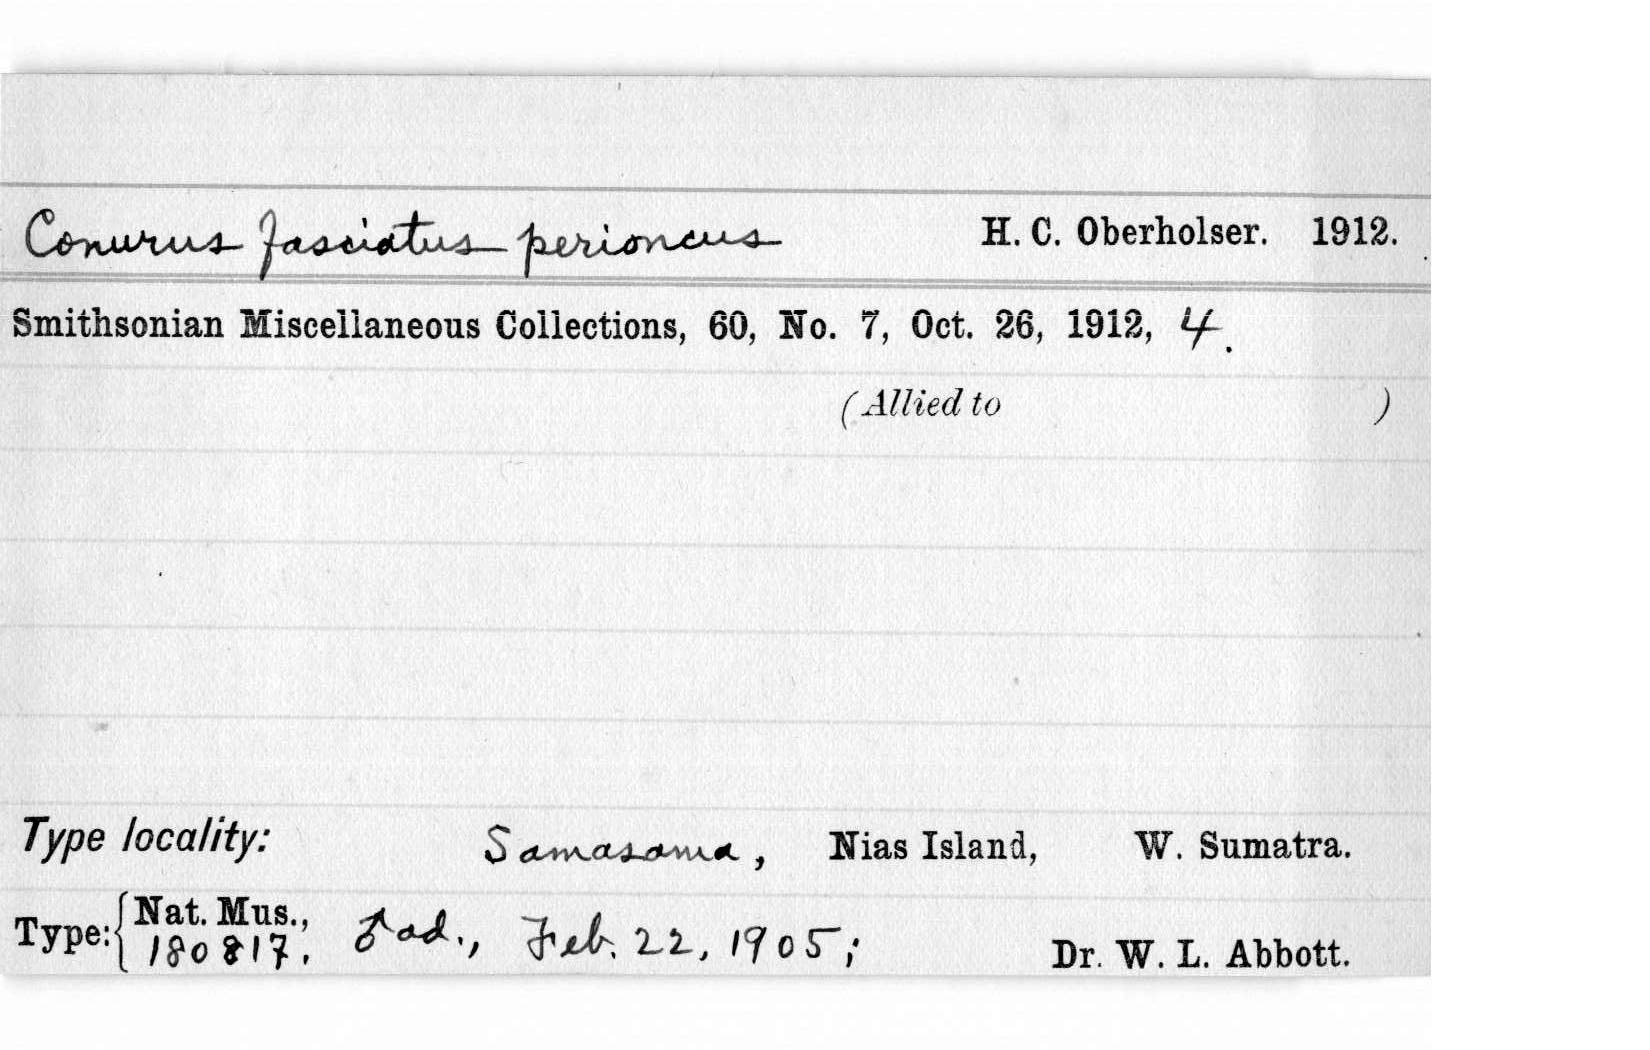 Conurus fasciatus perioncus H. C. Oberholser. 1912.
Smithsonian Miscellaneous Collections, 60, No. 7, Oct. 26, 1912, 4.
(Allied to )
Type locality: Samasama, Nias Island, W. Sumatra.
Type: { Nat. Mus., 180817. ♂ ad., Feb. 22, 1905; Dr. W. L. Abbott.